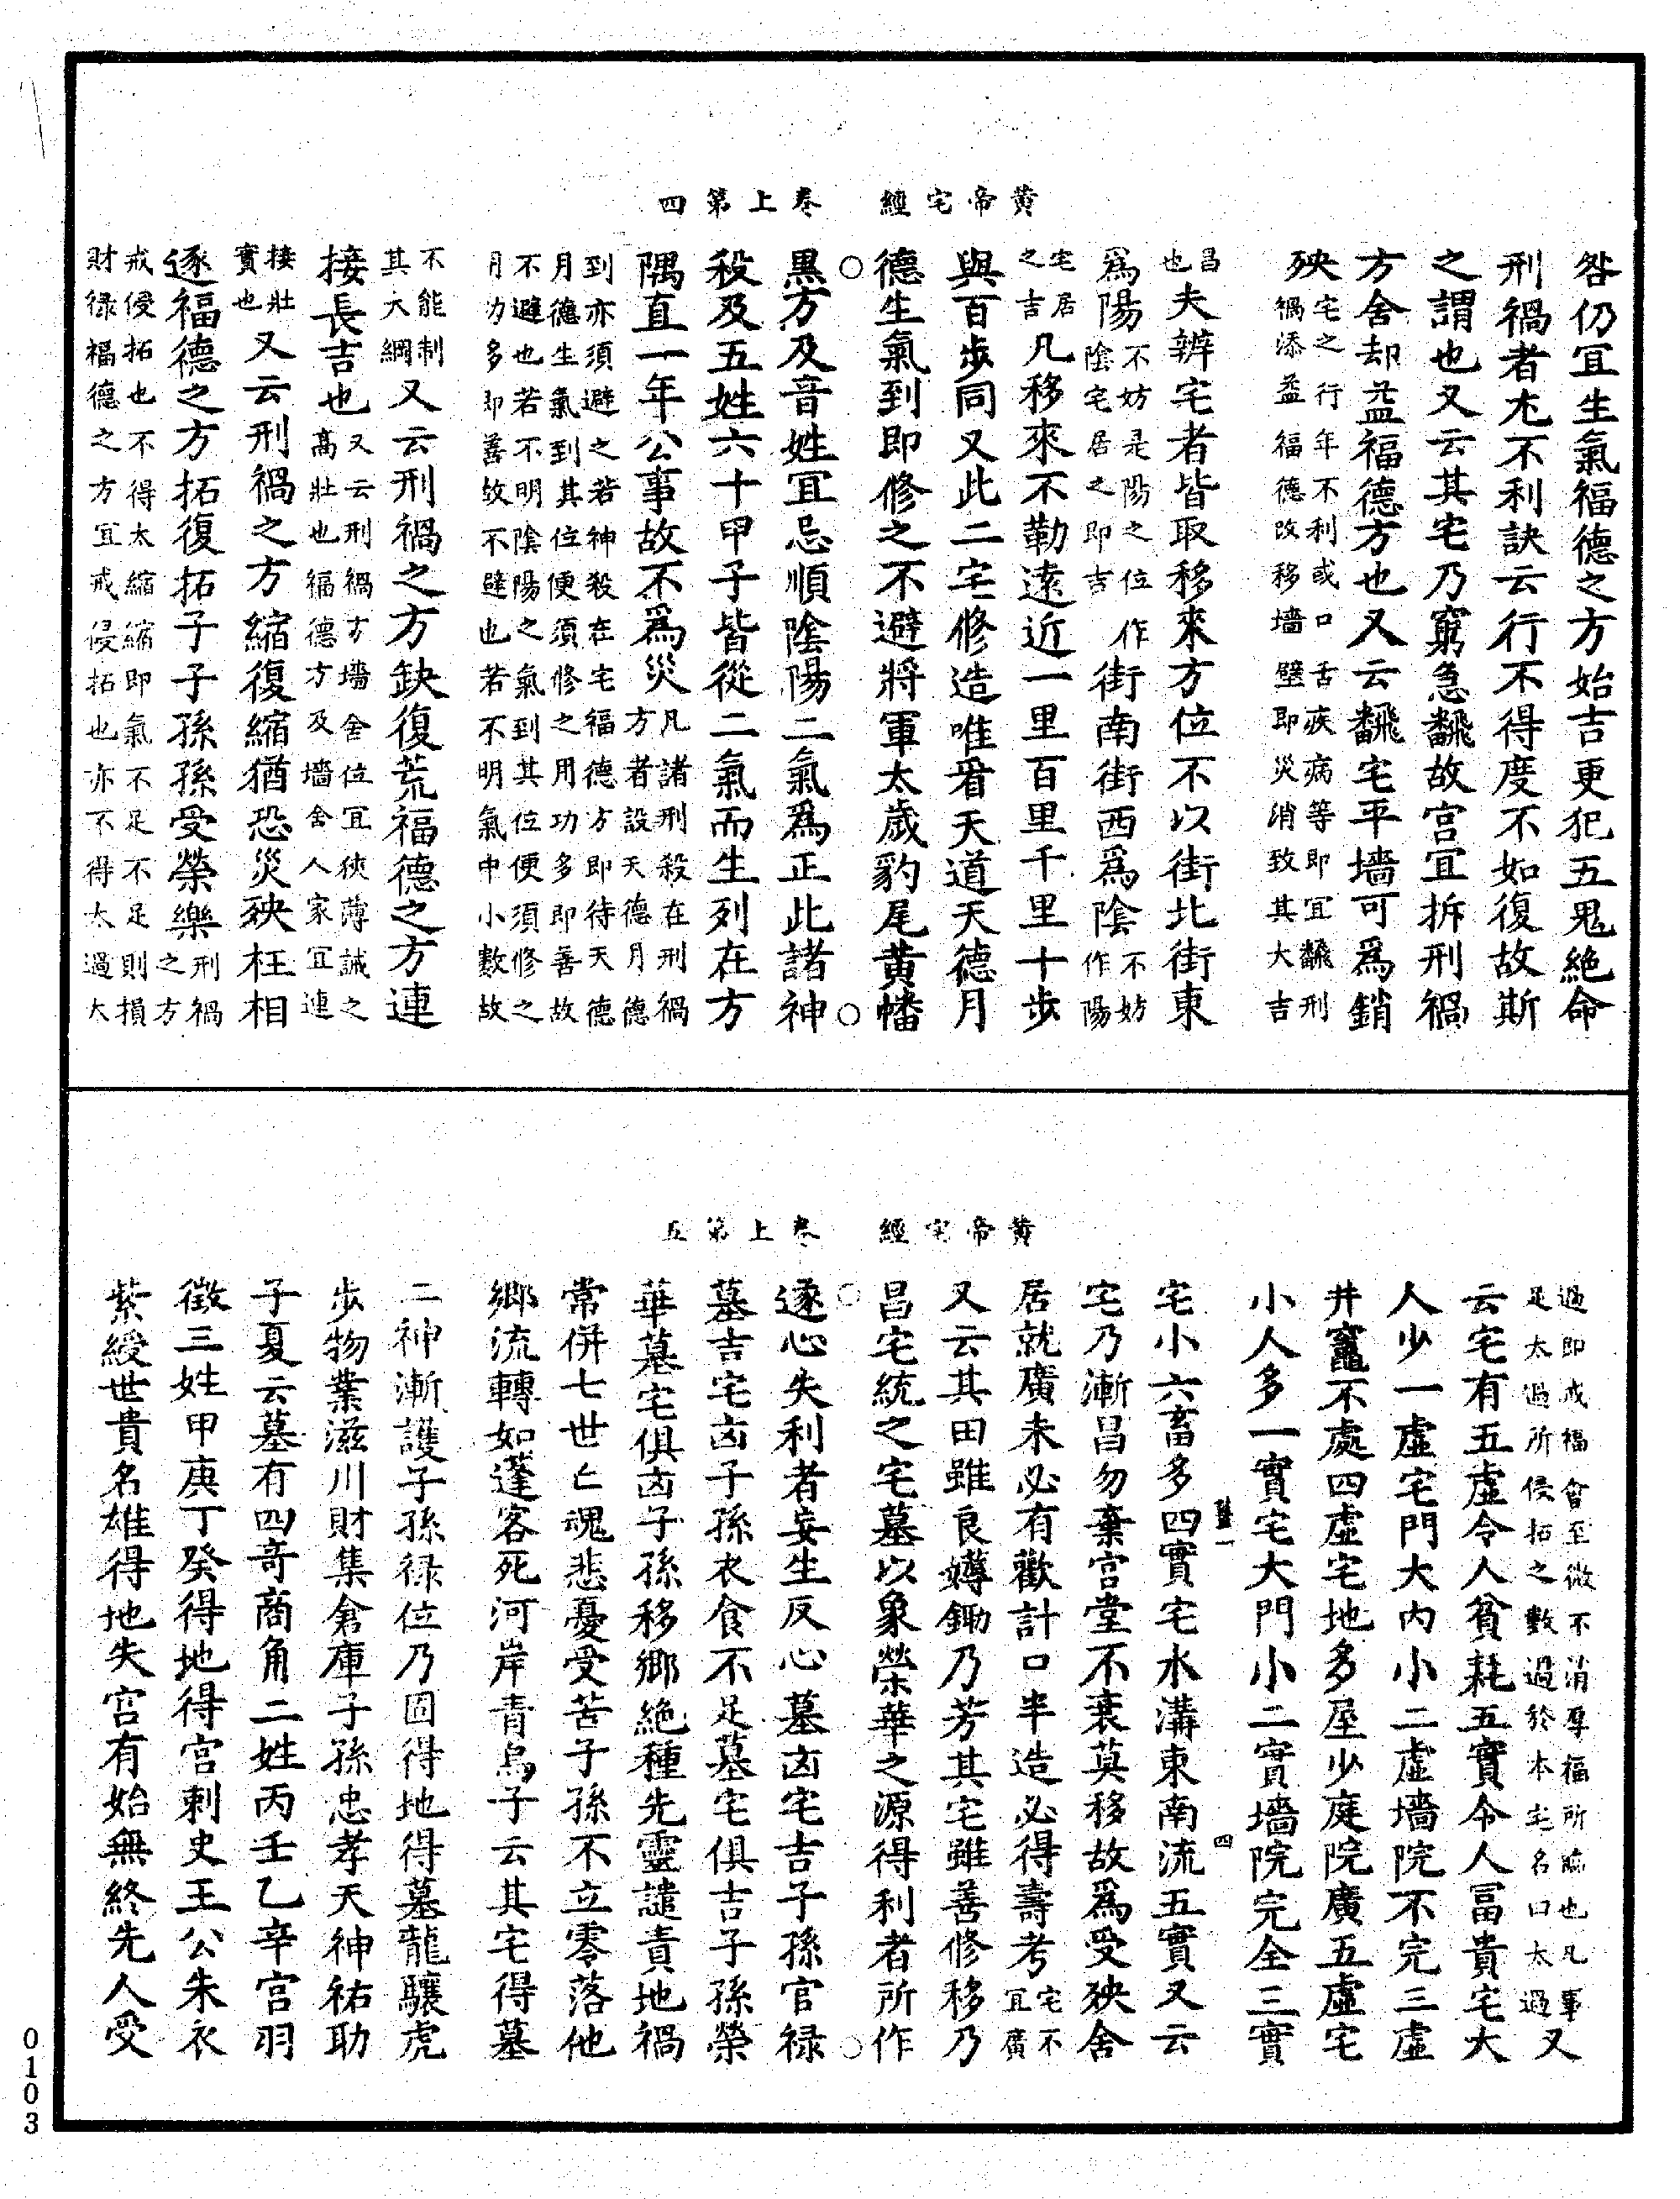 黄帝宅經　卷上第四
咎仍宜生氣福德之方始吉更犯五鬼絶命
刑禍者尤不利訣云行不得度不如復故斯
之謂也又云其宅乃窮急飜故宫宜拆刑禍
方舍却益福德方也又云飜宅平墻可爲銷
殃宅之行年不利或口舌疾病等即宜飜刑
禍添益福德改移墻壁即災消致其大吉
昌也夫辨宅者皆取移來方位不以街北街東
爲陽不妨是陽之位作陰宅居之即吉街南街西爲陰不妨作陽
宅居之吉凡移來不勒遠近一里百里千里十步
與百步同又此二宅修造唯看天道天德月
德生氣到即修之不避將軍太歲豹尾黄幡
黒方及音姓宜忌順陰陽二氣爲正此諸神
殺及五姓六十甲子皆從二氣而生列在方
隅直一年公事故不爲災凡諸刑殺在刑禍
方者設天德月德
到亦須避之若神殺在宅福德方即待天德
月德生氣到其位便須修之用功多即善故
不避也若不明陰陽之氣到其位便須修之
用功多即善故不避也若不明氣中小數故
不能制其大綱又云刑禍之方缺復荒福德之方連
接長吉也又云刑禍方墻舍位宜狹薄誡之
高壯也福德方及墻舍人家宜連
接壯實也又云刑禍之方縮復縮猶恐災殃枉相
逐福德之方拓復拓子子孫孫受榮樂刑禍之方
戒侵拓也不得太縮縮即氣不足不足則損
財禄福德之方宜戒侵拓也亦不得太過太
黄帝宅經　卷上第五
過即戒福會至微不消厚福所臨也凡事
足太過所侵拓之數過於本宅名曰太過又
云宅有五虚令人貧耗五實令人冨貴宅大
人少一虚宅門大内小二虚墻院不完三虚
井竈不處四虚宅地多屋少庭院廣五虚宅
小人多一實宅大門小二實墻院完全三實
宅小六畜多四實宅水溝東南流五實又云
宅乃漸昌勿棄宫堂不衰莫移故爲受殃舍
居就廣未必有歡計口半造必得壽考宅不宜廣
又云其田雖良媷鋤乃芳其宅雖善修移乃
昌宅統之宅墓以象榮華之源得利者所作
遂心失利者妄生反心墓凶宅吉子孫官禄
墓吉宅凶子孫衣食不足墓宅俱吉子孫榮
華墓宅俱凶子孫移鄉絶種先靈譴責地禍
常併七世亡魂悲憂受苦子孫不立零落他
鄉流轉如蓬客死河岸青烏子云其宅得墓
二神漸護子孫禄位乃固得地得墓龍驤虎
步物業滋川財集倉庫子孫忠孝天神祐助
子夏云墓有四竒商角二姓丙壬乙辛宫羽
徵三姓甲庚丁癸得地得宫刺史王公朱衣
紫綬世貴名雄得地失宫有始無終先人受
四
0103